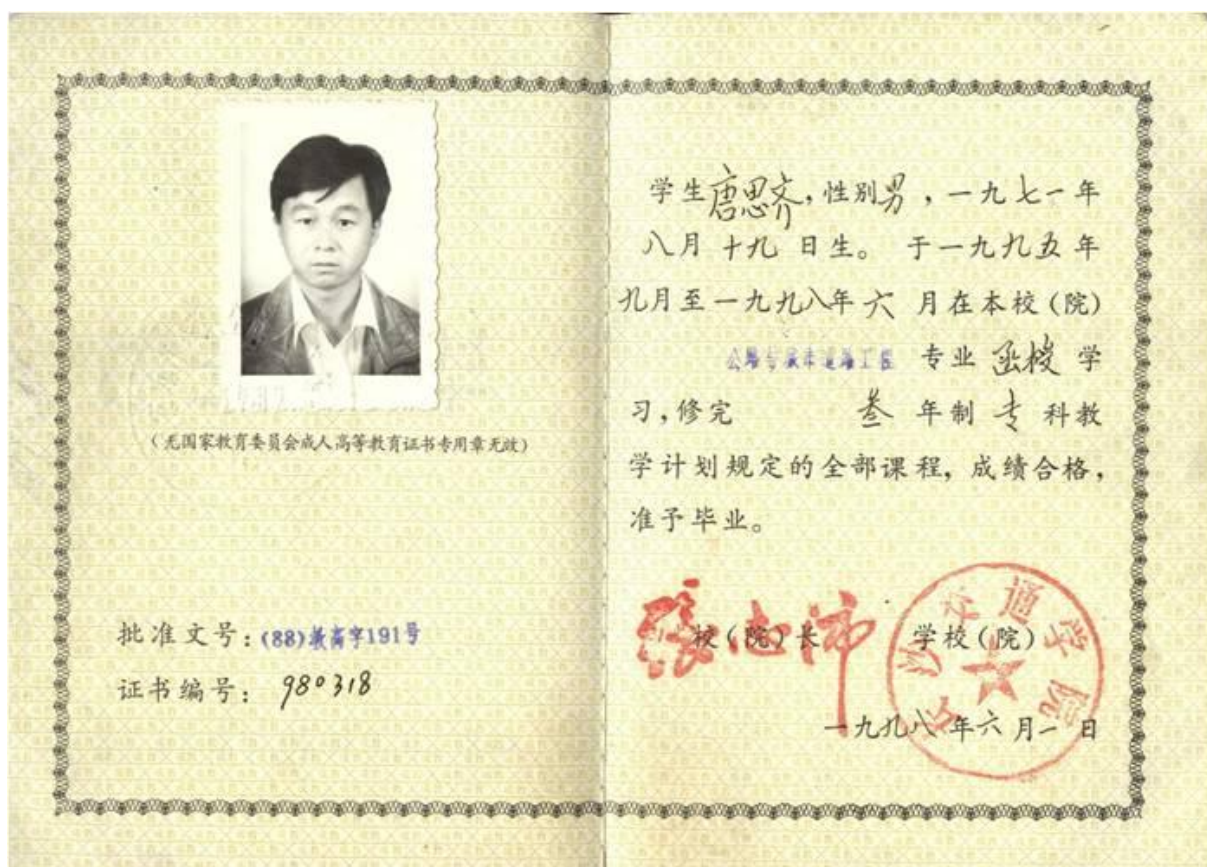 (无国家教育委员会成人高等教育证书专用章无效)
批准文号:(88)教高字191号
证书编号: 980318
学生唐思齐,性别男,一九七一年
八月十九日生。于一九九五年
九月至一九九八年六月在本校(院)
公路与城市道路工程 专业函授学
习,修完 叁 年制 专 科教
学计划规定的全部课程,成绩合格,
准予毕业。
校(院)长 学校(院)
长沙交通学院
一九九八年六月一日